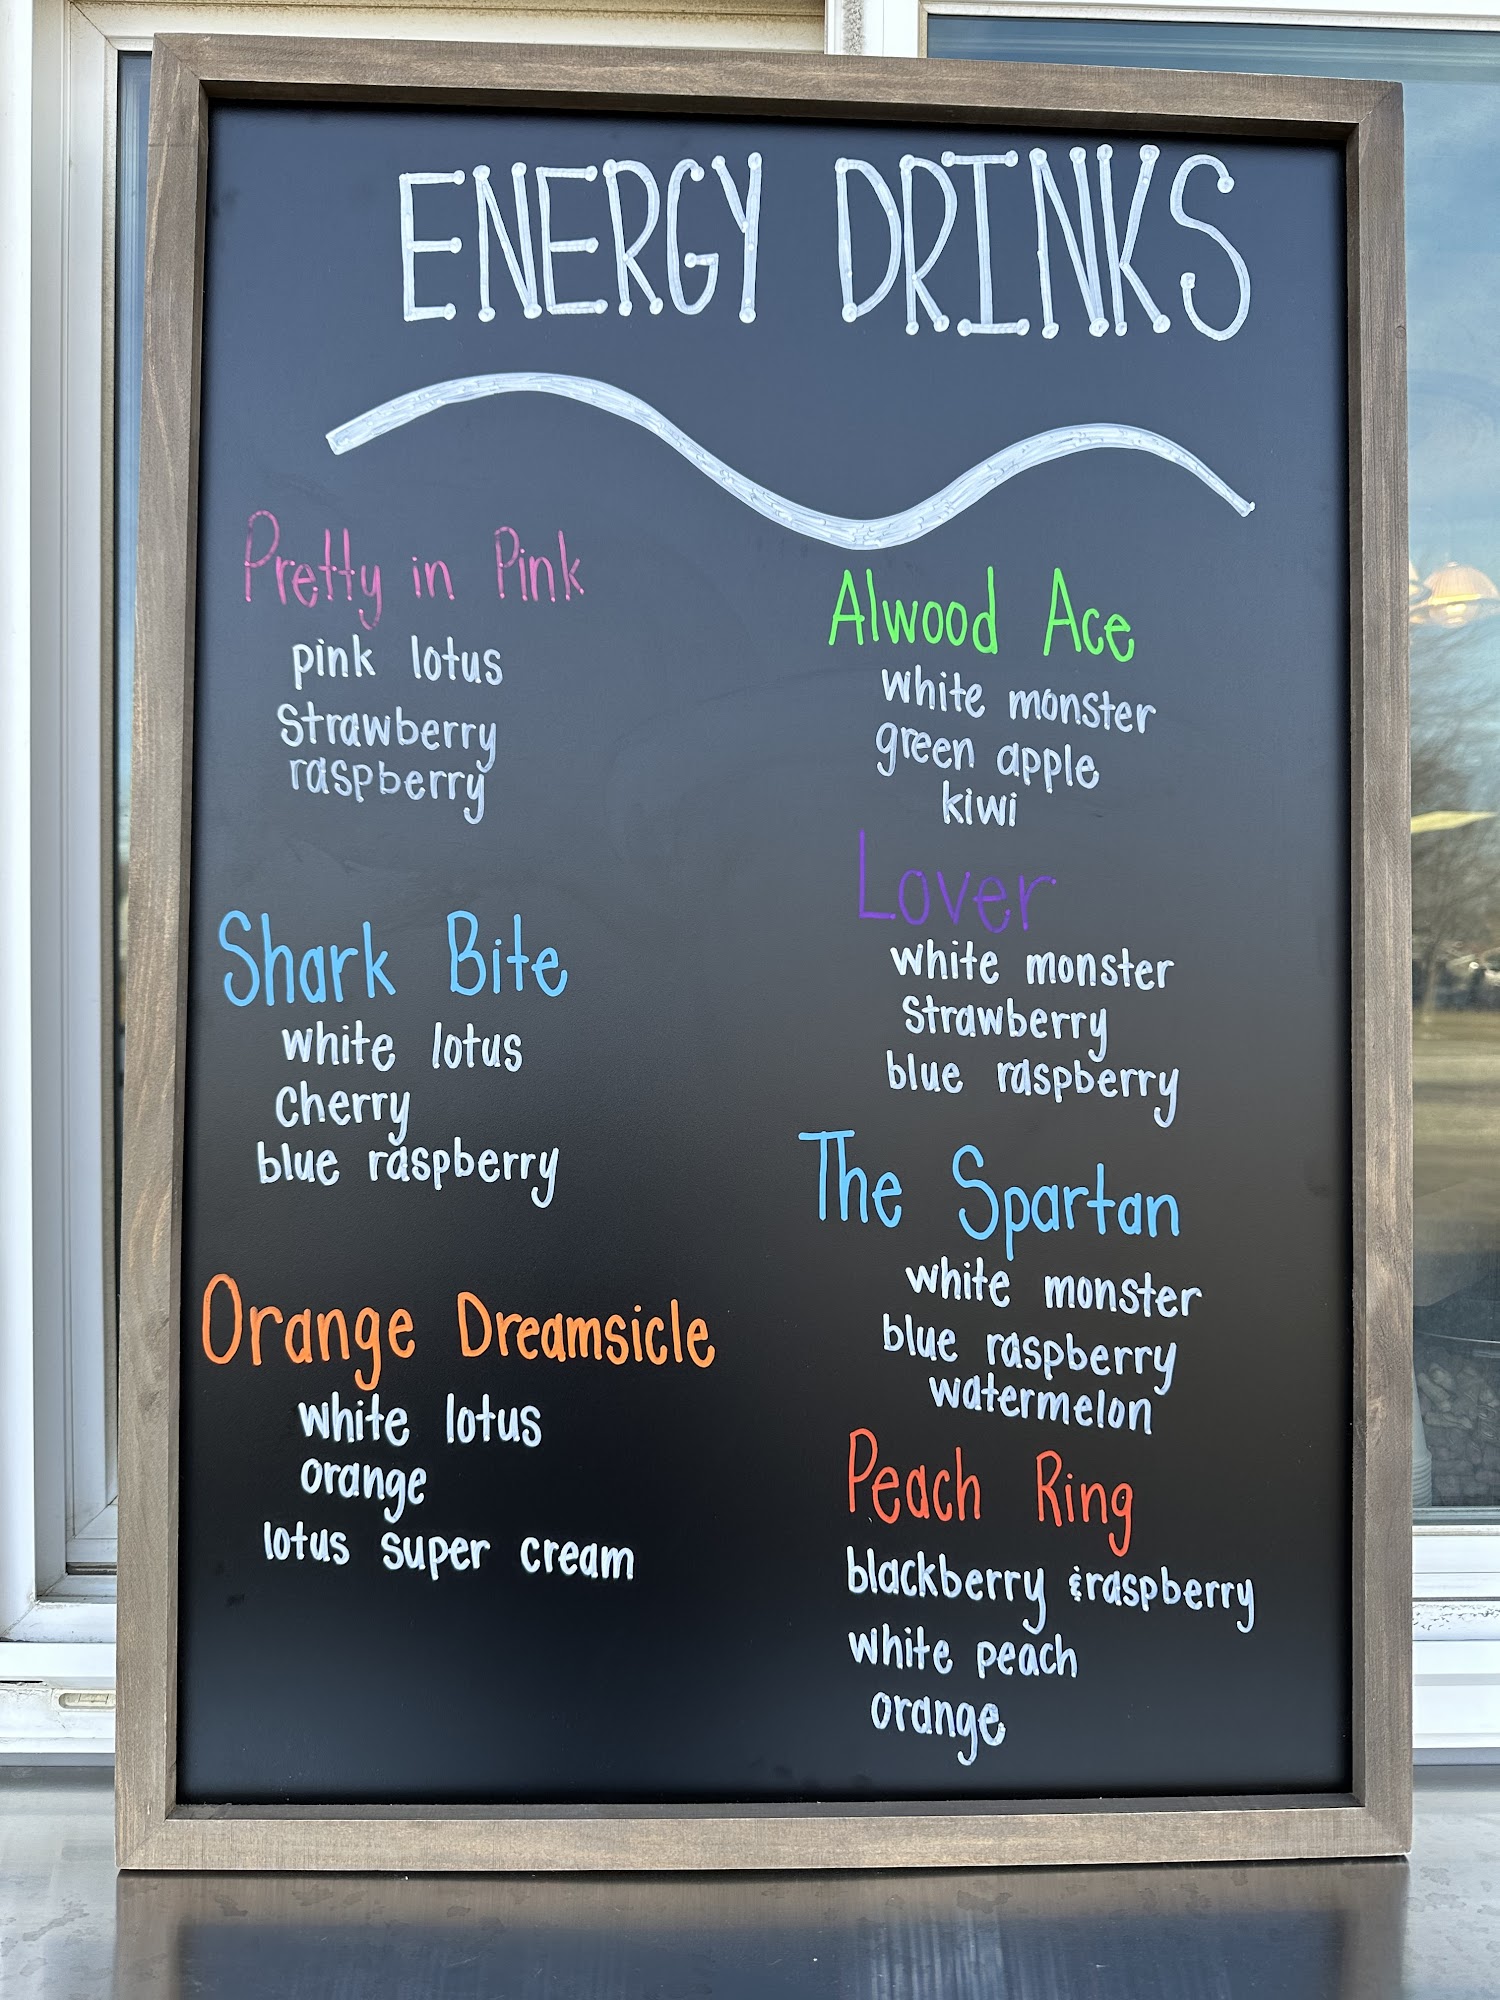 ENERGY DRINKS
Pretty in Pink
pink lotus
Strawberry
raspberry
Shark Bite
white lotus
Cherry
blue raspberry
Orange Dreamsicle
white lotus
orange
lotus super cream
Alwood Ace
white monster
green apple
kiwi
Lover
white monster
Strawberry
blue raspberry
The Spartan
white monster
blue raspberry
watermelon
Peach Ring
blackberry & raspberry
white peach
orange